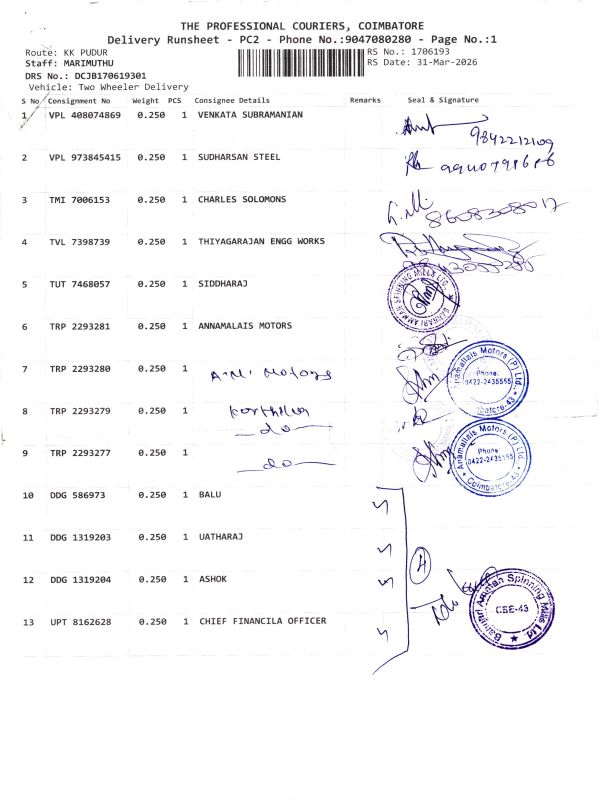 THE PROFESSIONAL COURIERS, COIMBATORE
Delivery Runsheet - PC2 - Phone No.:9047080280 - Page No.:1
Route: KK PUDUR
RS No.: 1706193
Staff: MARIMUTHU
RS Date: 31-Mar-2026
DRS No.: DCJB170619301
Vehicle: Two Wheeler Delivery
S No. Consignment No Weight PCS Consignee Details Remarks Seal & Signature
1 VPL 408074869 0.250 1 VENKATA SUBRAMANIAN
9842212109
2 VPL 973845415 0.250 1 SUDHARSAN STEEL
3 TMI 7006153 0.250 1 CHARLES SOLOMONS
8608308017
4 TVL 7398739 0.250 1 THIYAGARAJAN ENGG WORKS
5 TUT 7468057 0.250 1 SIDDHARAJ
BANNARI AMMAN SPINNING MILLS LTD.
6 TRP 2293281 0.250 1 ANNAMALAIS MOTORS
7 TRP 2293280 0.250 1 A.M. Motors
Anamallais Motors (P) Ltd.
Phone:
0422-2435555
Coimbatore-43
8 TRP 2293279 0.250 1
do
9 TRP 2293277 0.250 1 do
Anamallais Motors (P) Ltd.
Phone:
0422-2435555
Coimbatore-43
10 DDG 586973 0.250 1 BALU
11 DDG 1319203 0.250 1 UATHARAJ
4
12 DDG 1319204 0.250 1 ASHOK
Bannari Amman Spinning Mills Ltd
CBE-43
13 UPT 8162628 0.250 1 CHIEF FINANCILA OFFICER